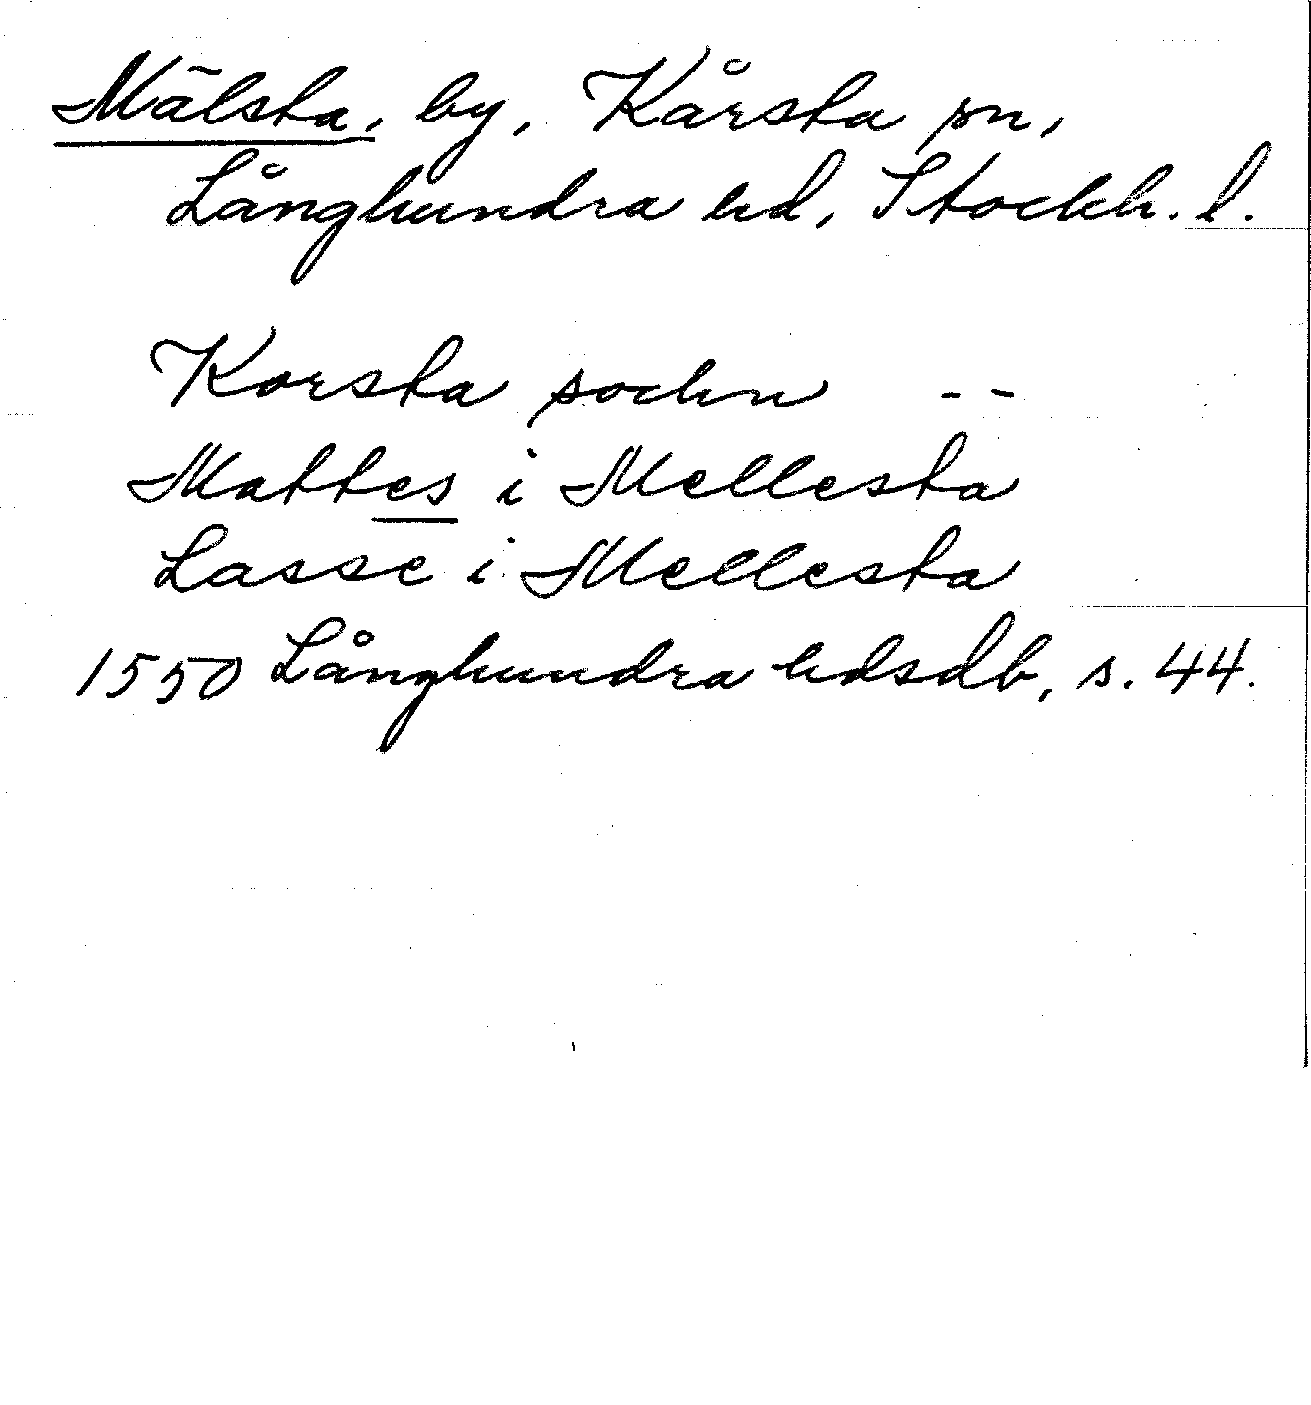 Mälsta, by, Kårsta sn,
Långhundra hd, Stockh. l.
Korsta sochn --
Mattes i Mellesta
Lasse i Mellesta
1550 Långhundra hdsdb, s. 44.